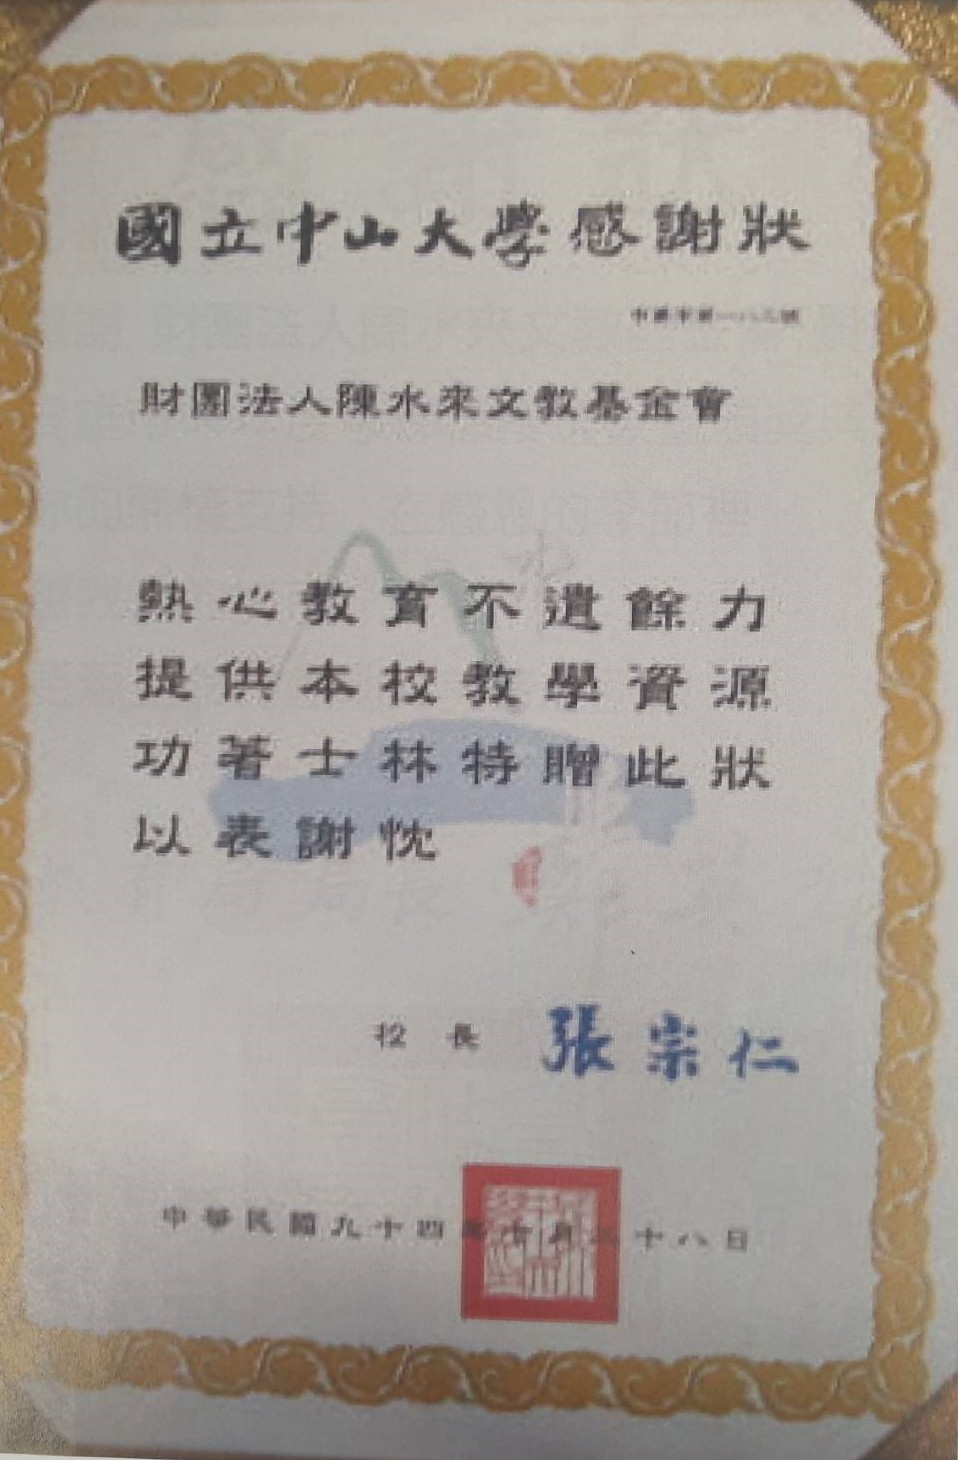 國立中山大學感謝狀
財團法人陳水來文教基金會
熱心教育不遺餘力
提供本校教學資源
功著士林特贈此狀
以表謝忱
校長 張宗仁
中華民國九十四年十月二十八日